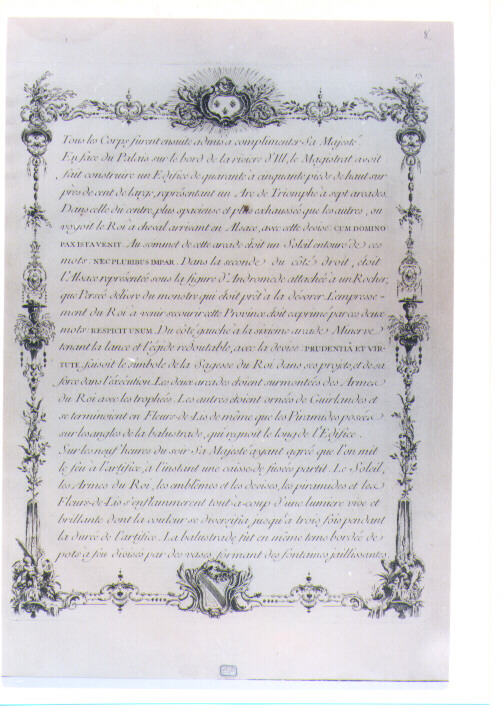 8
Tous les Corps furent ensuite admis a complimenter Sa Majesté.
En face du Palais sur le bord de la riviere d'Ill, le Magistrat avoit
fait construire un Edifice de quarante a cinquante pieds de haut sur
près de cent de large, représentant un Arc de Triomphe à sept arcades.
Dans celle du centre, plus spacieuse et plus exhaussée que les autres, on
voyoit le Roi à cheval arrivant en Alsace, avec cette devise CUM DOMINO
PAX ISTA VENIT. Au sommet de cette arcade étoit un Soleil entouré de ces
mots NEC PLURIBUS IMPAR. Dans la seconde du côté droit, étoit
l'Alsace représentée sous la figure d'Andromede attachée a un Rocher,
que Persée délivre du monstre qui étoit prêt à la dévorer. L'empresse-
ment du Roi à venir secourir cette Province étoit exprimé par ces deux
mots RESPICIT UNUM. Du côté gauche à la sixieme arcade Minerve
tenant la lance et l'égide redoutable, avec la devise PRUDENTIÂ ET VIR-
TUTE, faisoit le simbole de la Sagesse du Roi dans ses projets, et de sa
force dans l'exécution. Les deux arcades étoient surmontées des Armes
du Roi avec les trophées. Les autres étoient ornées de Guirlandes et
se terminoient en Fleurs-de-Lis de même que les Piramides posées
sur les angles de la balustrade, qui regnoit le long de l'Edifice.
Sur les neuf heures du soir Sa Majesté ayant agréé que l'on mît
le feu à l'artifice, à l'instant une caisse de fusées partit. Le Soleil,
les Armes du Roi, les emblêmes et les devises, les piramides et les
Fleurs-de-Lis s'enflammerent tout-à-coup d'une lumiere vive et
brillante dont la couleur se diversifia jusqu'à trois fois pendant
la durée de l'artifice. La balustrade fut en même tems bordée de
pots à feu divisés par des vases, formant des fontaines jaillissantes